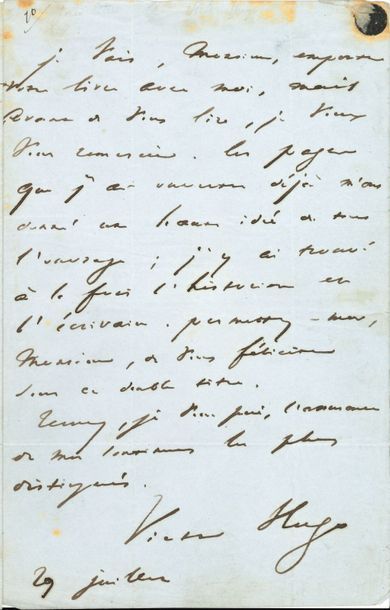 je vais, Monsieur, emporter
votre livre avec moi, mais
avant de vous lire, je veux
vous remercier. Les pages
que j'ai ouvertes déjà m'ont
donné une haute idée de tout
l'ouvrage ; j'y ai trouvé
à la fois l'historien et
l'écrivain. permettez-moi,
Monsieur, de vous féliciter
dans ce double titre.
Recevez, je vous prie, l'assurance
de mes sentiments les plus
distingués.
Victor Hugo
29 juillet